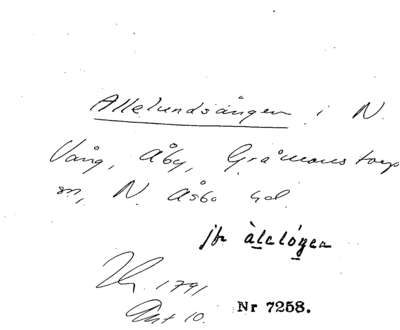 Allelundsängen i N.
Vång, Åby, Gråmanstorp
sn, N. Åsbo hd.
jfr àlelóŋen
1791
Akt 10.
Nr 7258.